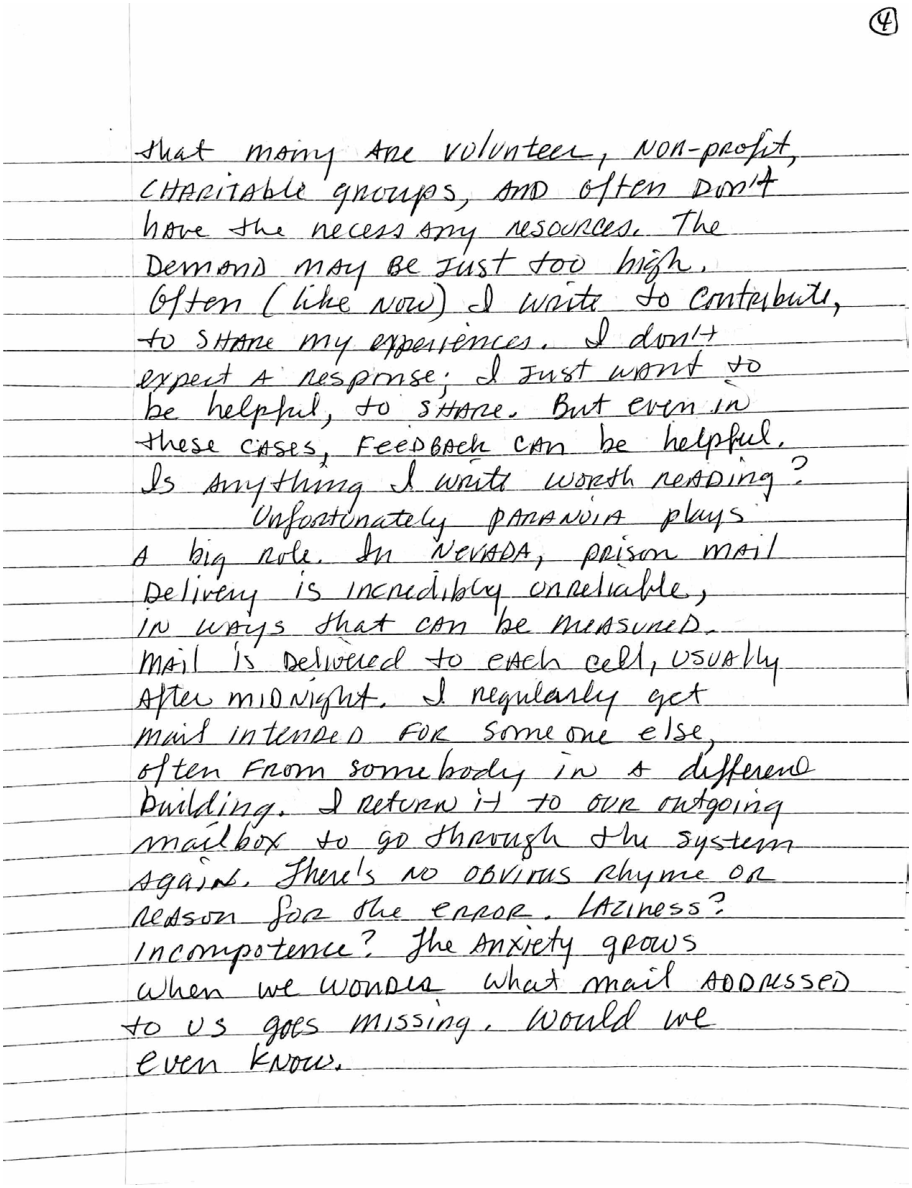 4
that many are volunteer, non-profit,
charitable groups, and often don't
have the necessary resources. The
demand may be just too high.
Often (like now) I write to contribute,
to share my experiences. I don't
expect a response; I just want to
be helpful, to share. But even in
these cases, feedback can be helpful.
Is anything I write worth reading?
Unfortunately paranoia plays
a big role. In Nevada, prison mail
delivery is incredibly unreliable,
in ways that can be measured.
Mail is delivered to each cell, usually
after midnight. I regularly get
mail intended for someone else,
often from somebody in a different
building. I return it to our outgoing
mailbox to go through the system
again. There's no obvious rhyme or
reason for the error. Laziness?
Incompotence? The anxiety grows
when we wonder what mail addressed
to us goes missing. Would we
even know.